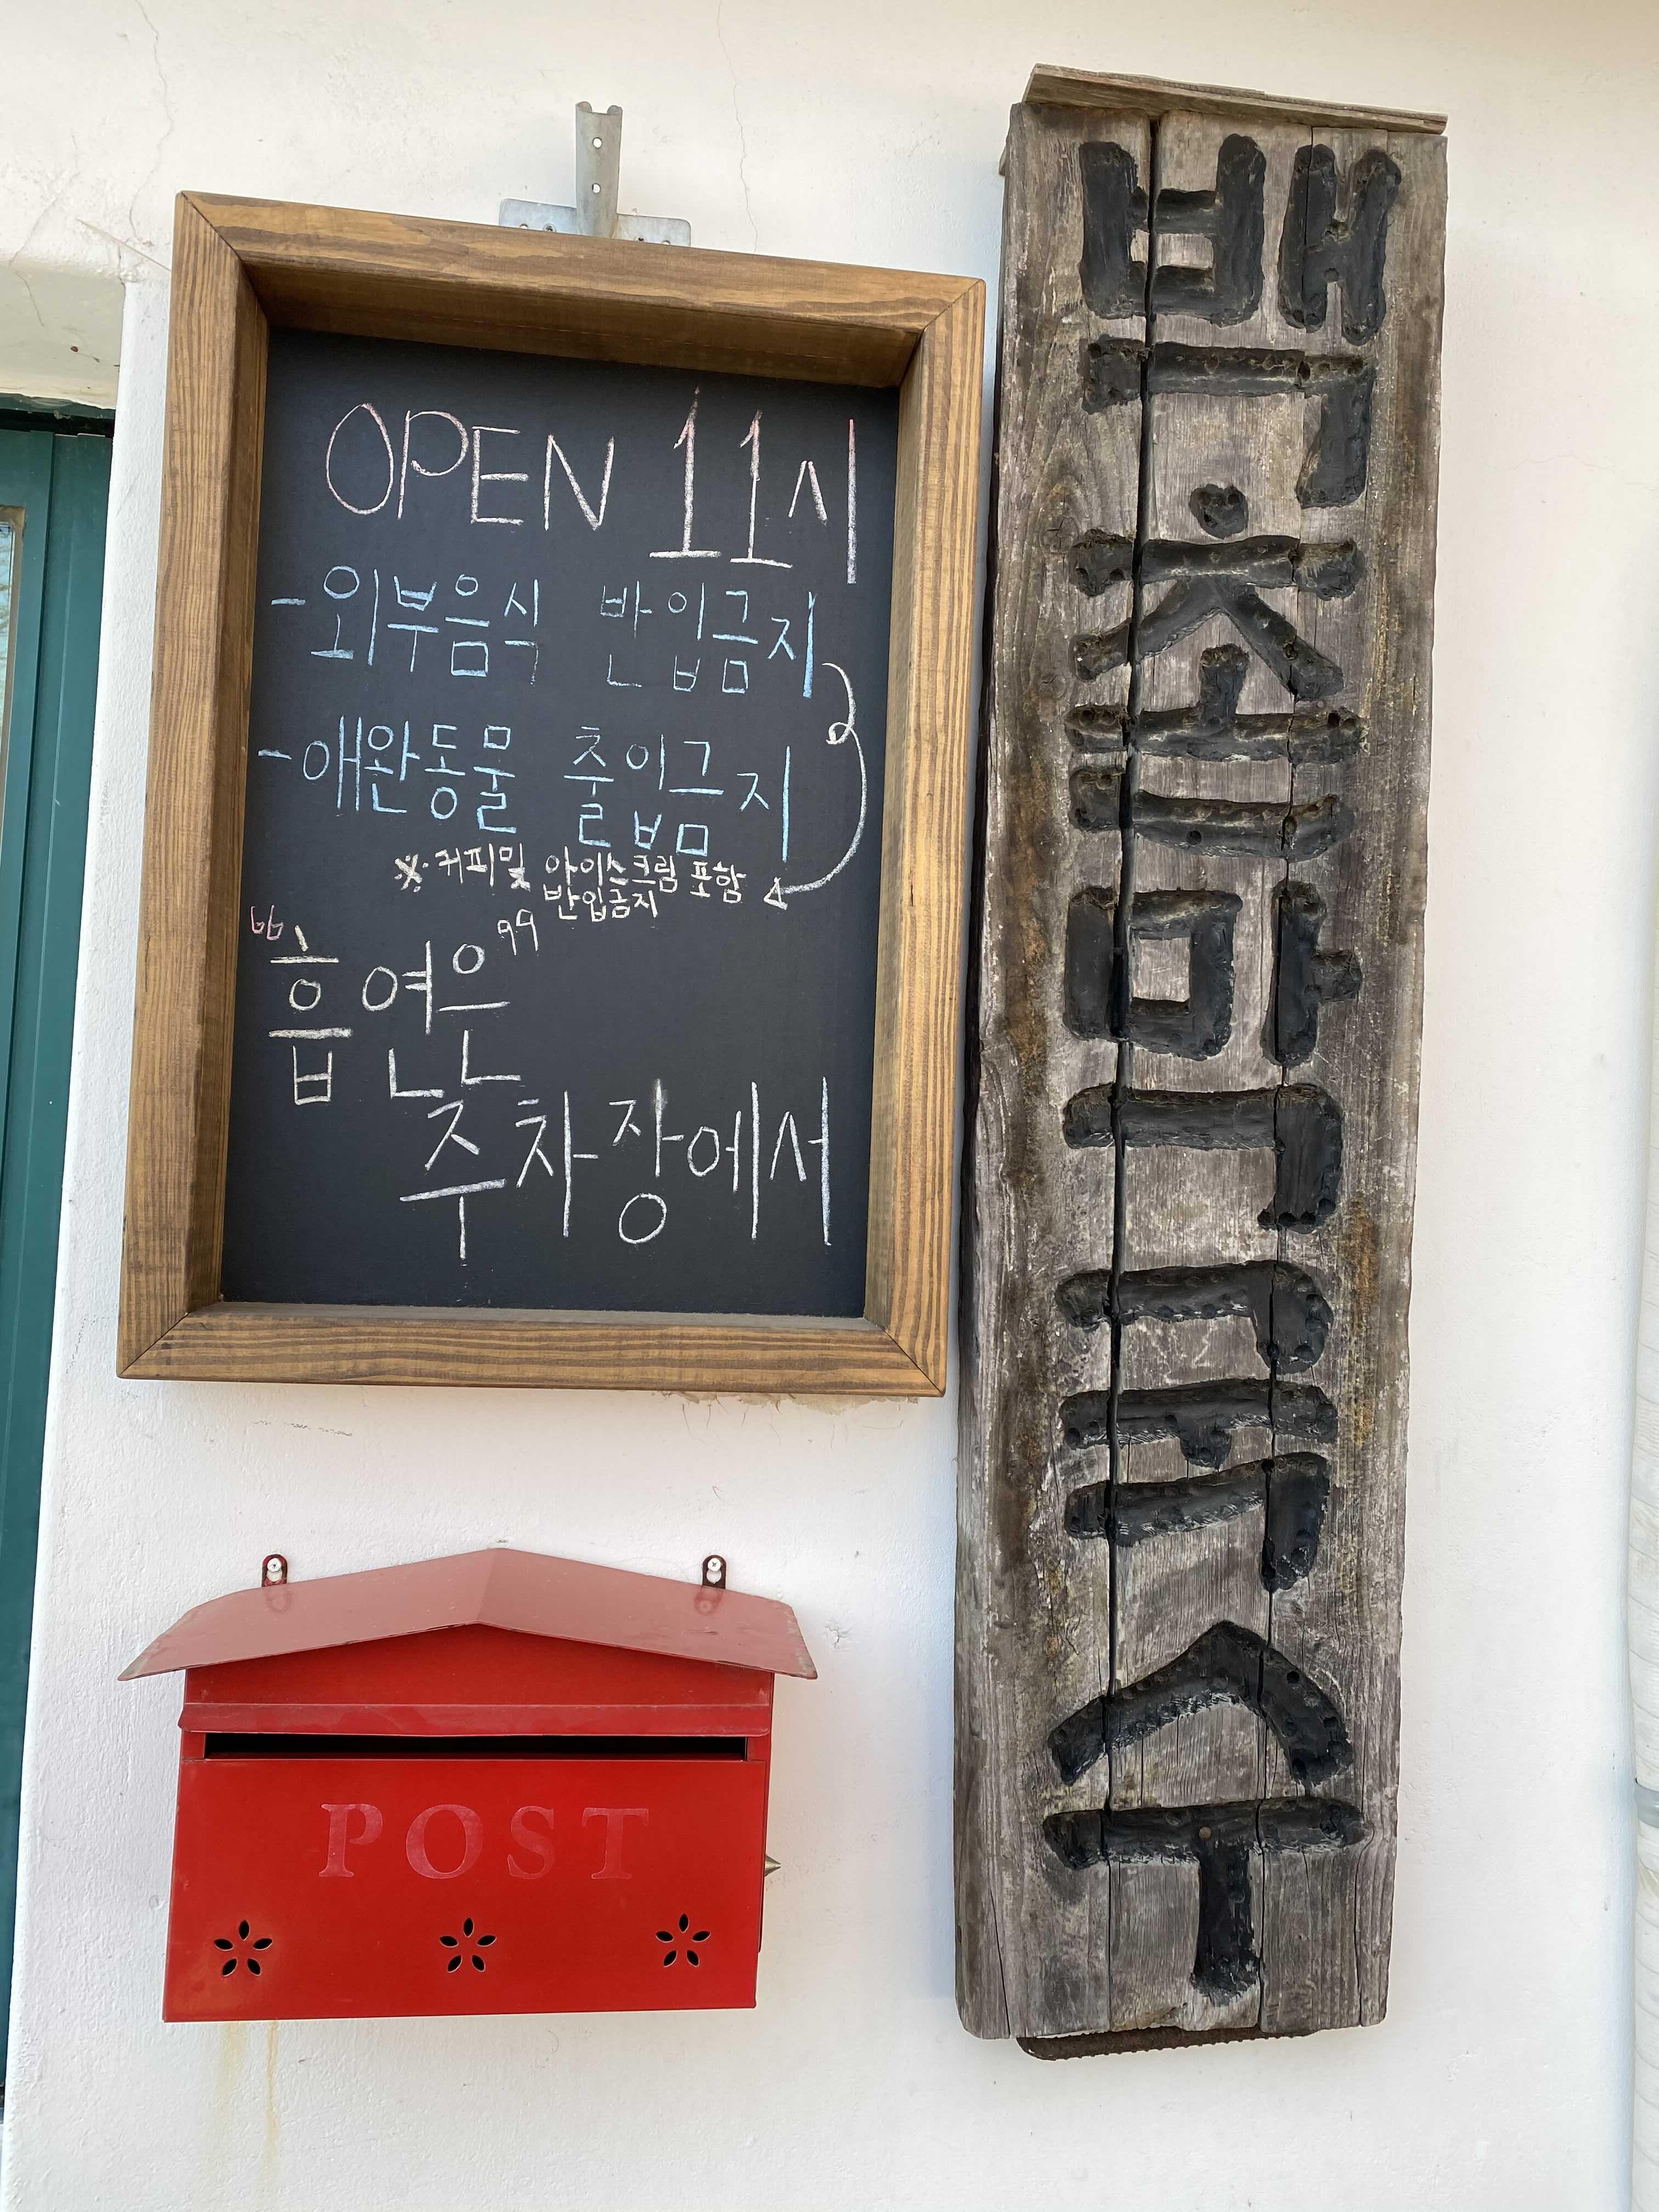 OPEN 11시
-외부음식 반입금지
-애완동물 출입금지
※커피및 아이스크림 포함
반입금지
“흡연은”
주차장에서
백촌막국수
POST